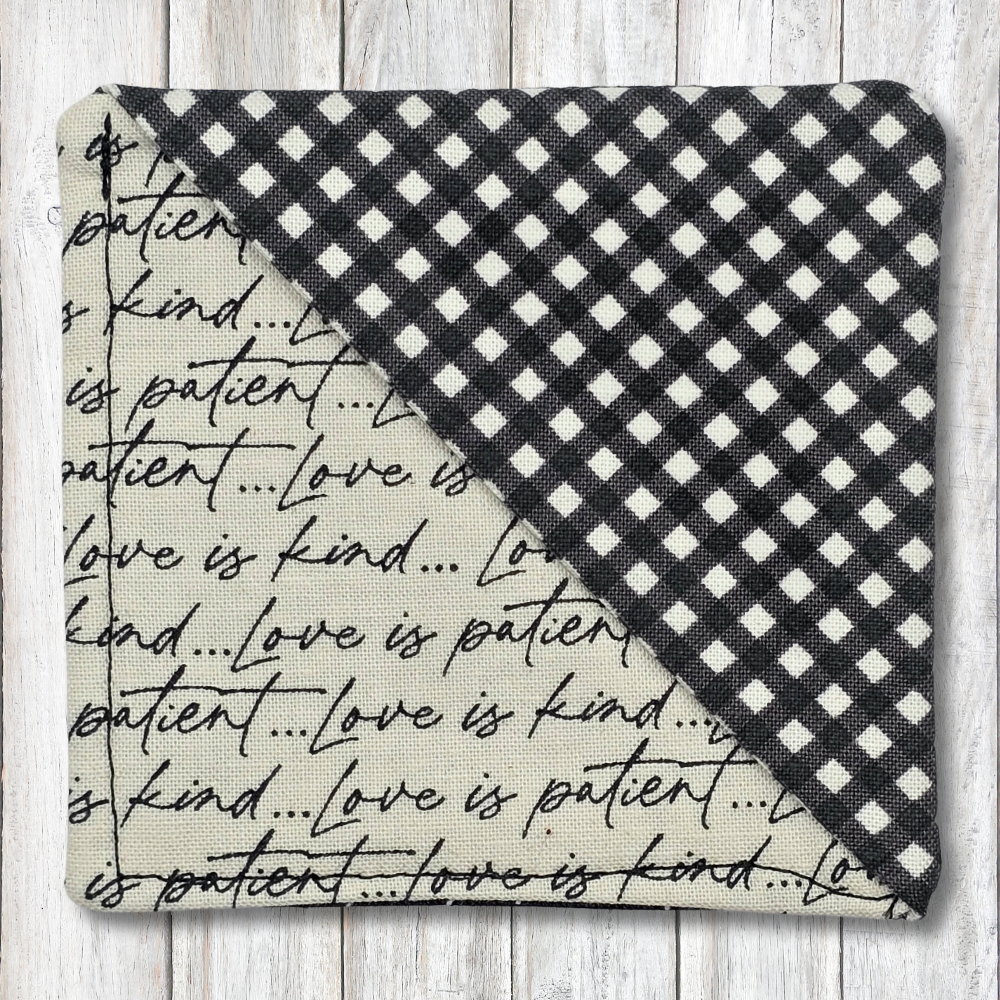 is
patient
kind...L
is patient...L
patient...Love is
Love is kind... Lov
kind...Love is patien
patient...Love is kind...
is kind...Love is patient...L
is patient...Love is kind...Lo